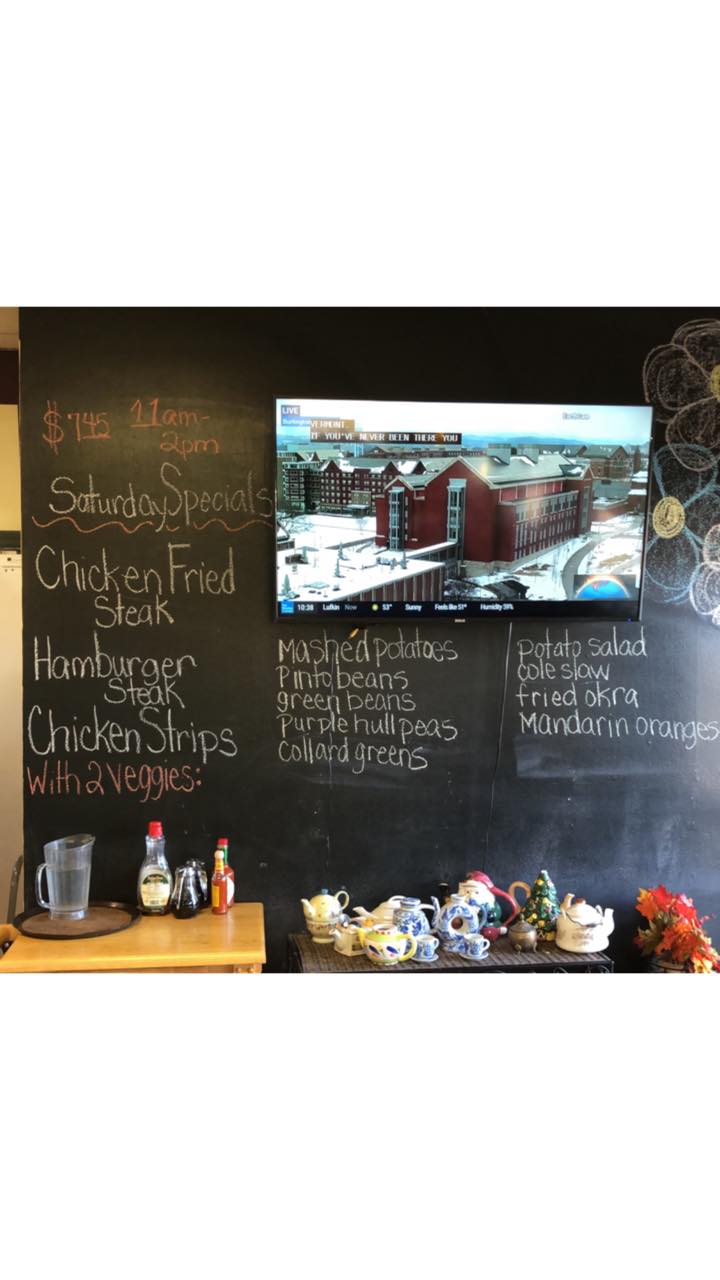 $7.45 11am-
2pm
Saturday Specials
Chicken Fried
Steak
Hamburger
Steak
Chicken Strips
With 2 Veggies:
LIVE
Burlington
VERMONT.
IF YOU'VE NEVER BEEN THERE YOU
EarthCam
10:38 Lufkin Now 53° Sunny Feels like 51° Humidity 59%
Mashed potatoes
Pinto beans
green beans
Purple hull peas
collard greens
Potato salad
cole slaw
fried okra
Mandarin oranges